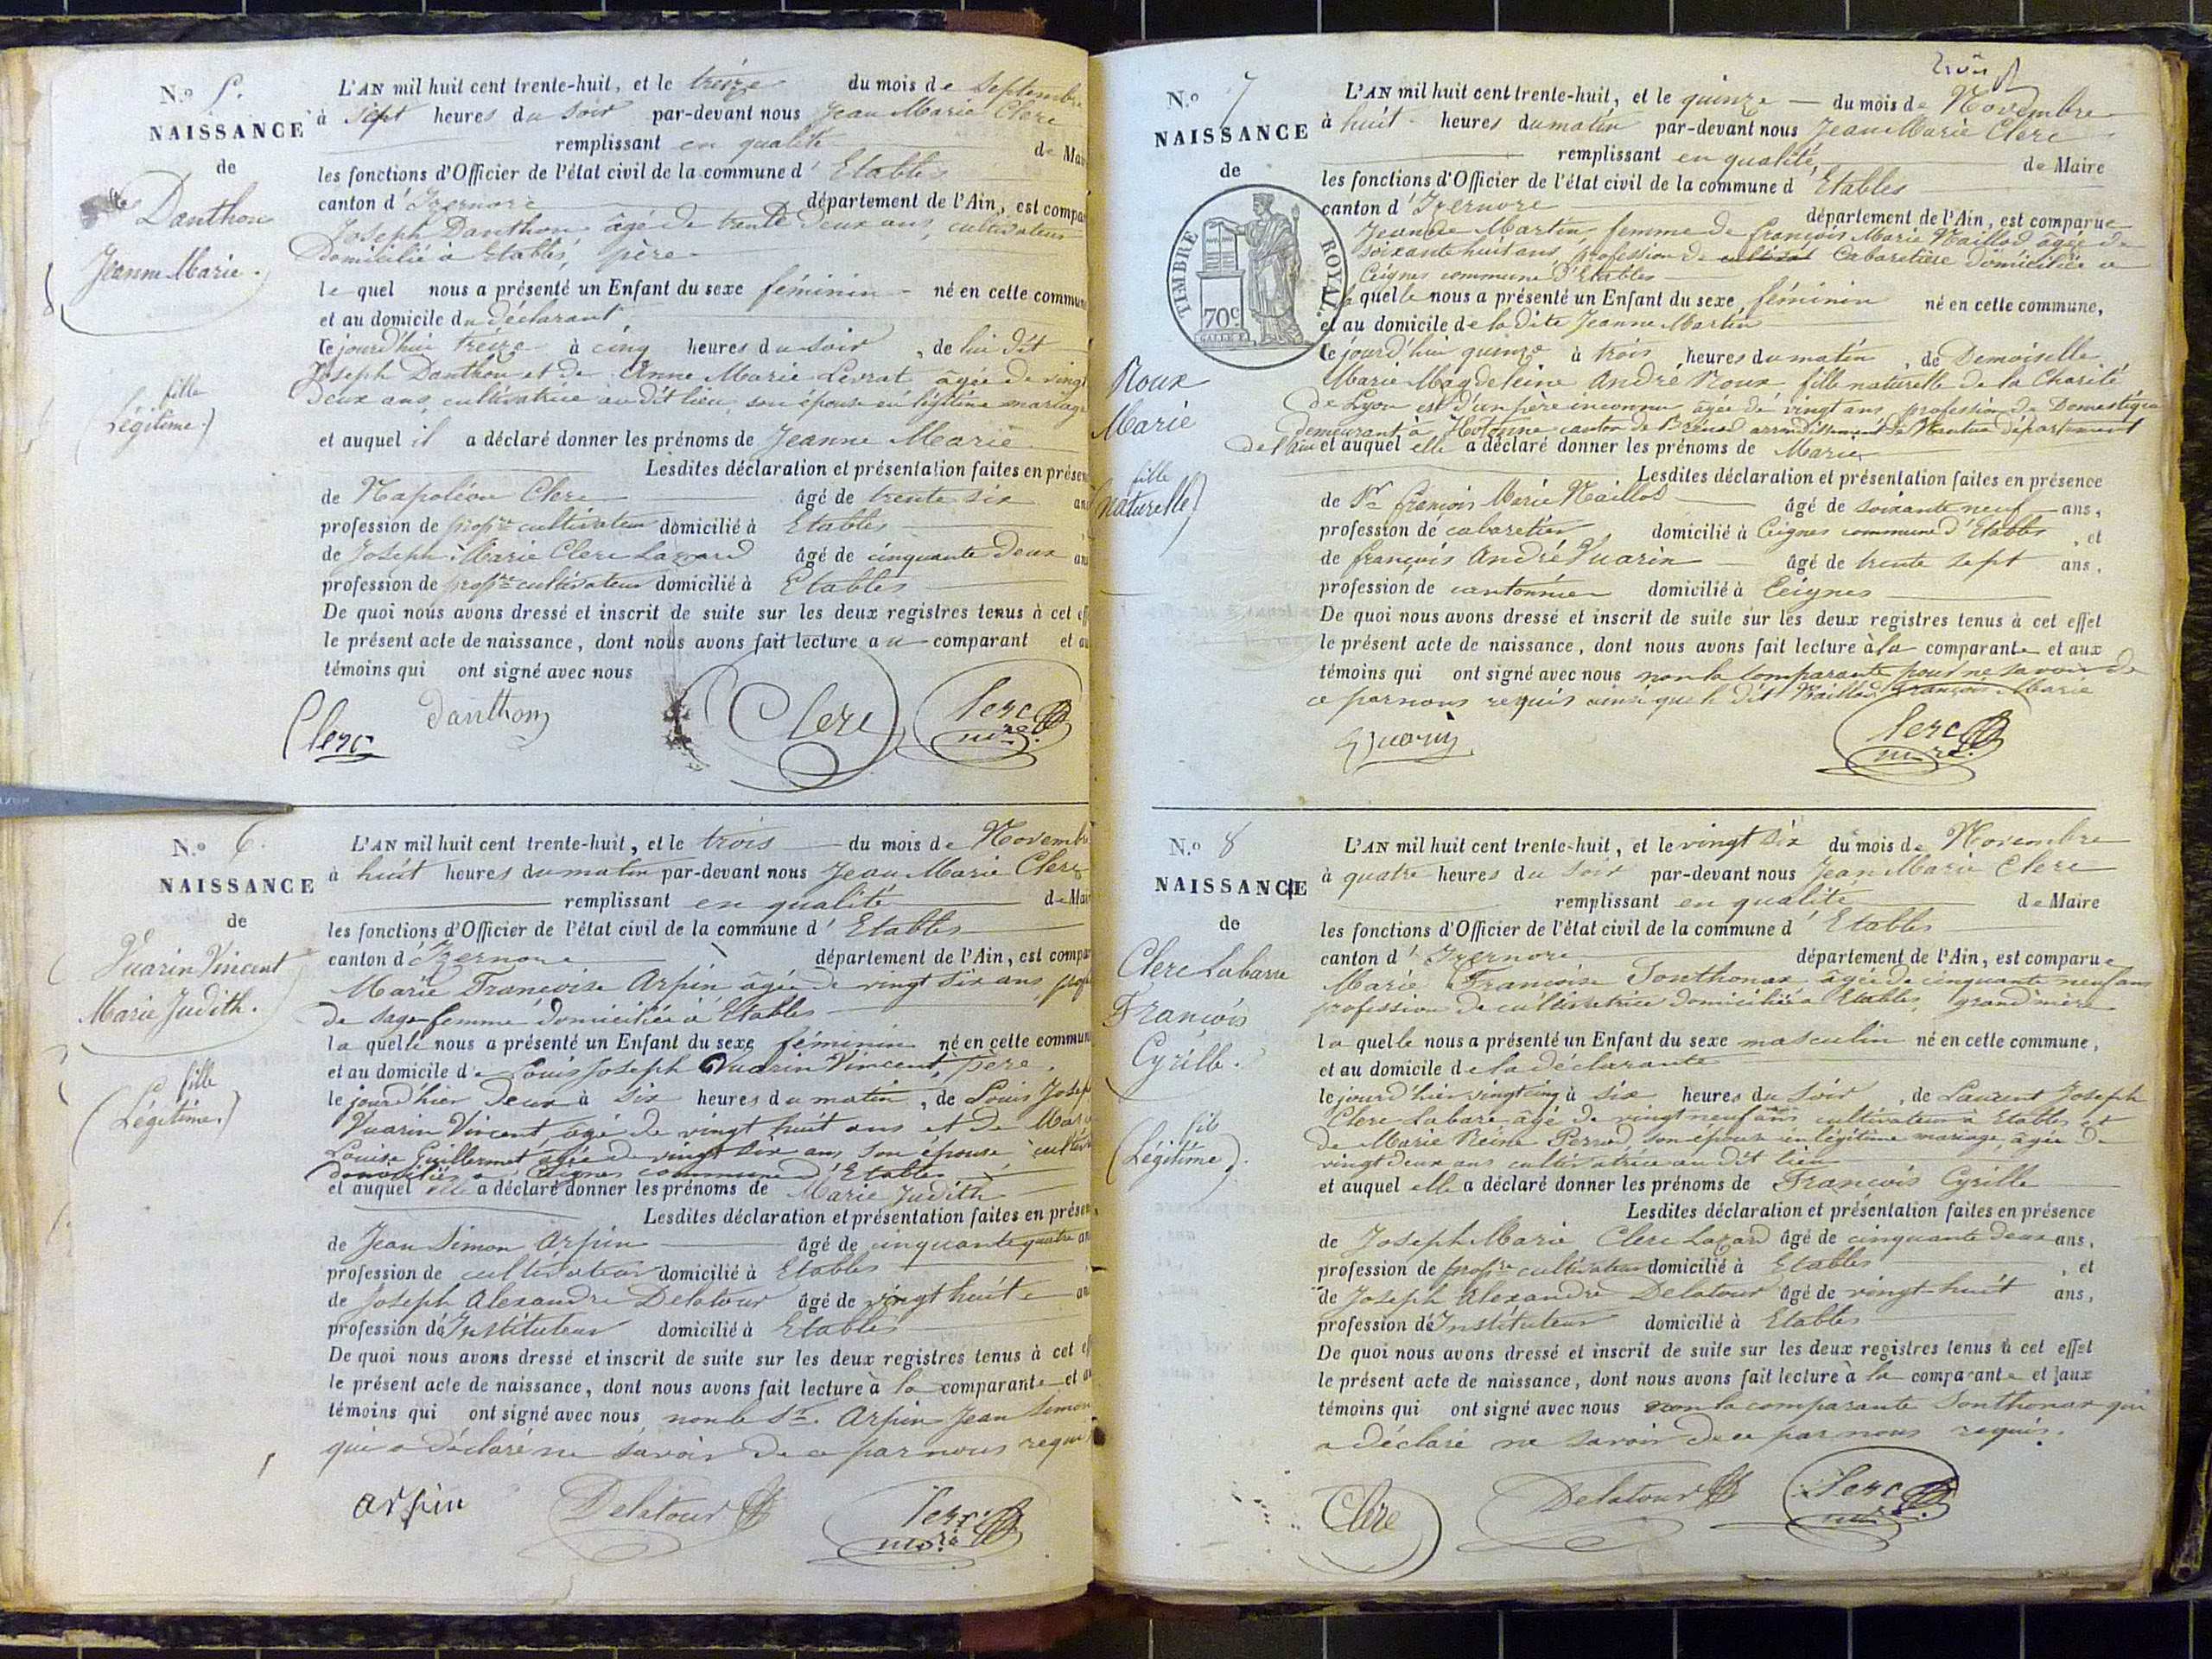 N.o 5.
NAISSANCE
de
Danthon
Jeanne Marie.
fille
(Légitime.)
L'AN mil huit cent trente-huit, et le treize du mois de Septembre
à sept heures du soir par-devant nous Jean Marie Clerc
remplissant en qualité de Mai
les fonctions d'Officier de l'état civil de la commune d' Etables
canton d' Izernore département de l'Ain, est compa
Joseph Danthon âgé de trente deux ans, cultivateur
Domicilié à Etables, père
le quel nous a présenté un Enfant du sexe féminin né en cette commun
et au domicile du déclarant
le jourd'hui treize à cinq heures du soir, de lui dit
Joseph Danthon et de Anne Marie Levrat âgée de vingt
deux ans, cultivatrice au dit lieu, son épouse en légitime mariage
et auquel il a déclaré donner les prénoms de Jeanne Marie
Lesdites déclaration et présentation faites en présen
de Napoléon Clerc âgé de trente six an
profession de propre cultivateur domicilié à Etables
de Joseph Marie Clerc Lazard âgé de cinquante deux an
profession de propre cultivateur domicilié à Etables
De quoi nous avons dressé et inscrit de suite sur les deux registres tenus à cet eff
le présent acte de naissance, dont nous avons fait lecture au comparant et au
témoins qui ont signé avec nous
Clerc danthon Clerc Clerc mre.
N.o 6.
NAISSANCE
de
Vuarin Vincent
Marie Judith.
fille
(Légitime.)
L'AN mil huit cent trente-huit, et le trois du mois de Novembre
à huit heures du matin par-devant nous Jean Marie Clerc
remplissant en qualité de Mai
les fonctions d'Officier de l'état civil de la commune d' Etables
canton d' Izernore département de l'Ain, est compar
Marie Françoise Arpin âgée de vingt six ans, profe
de sage-femme domiciliée à Etables
la quelle nous a présenté un Enfant du sexe féminin né en cette commun
et au domicile de Louis Joseph Vuarin Vincent, père,
le jour d'hier deux à six heures du matin, de Louis Joseph
Vuarin Vincent, âgé de vingt huit ans et de Marie
Louise Guillermet âgée de vingt six ans son épouse cultiv
domiciliés à Ceignes commune d'Etables
et auquel elle a déclaré donner les prénoms de Marie Judith
Lesdites déclaration et présentation faites en présen
de Jean Simon Arpin âgé de cinquante quatre an
profession de cultivateur domicilié à Etables
de Joseph Alexandre Delatour âgé de vingt huit an
profession d'Instituteur domicilié à Etables
De quoi nous avons dressé et inscrit de suite sur les deux registres tenus à cet eff
le présent acte de naissance, dont nous avons fait lecture à la comparante et au
témoins qui ont signé avec nous non le Sr. Arpin Jean Simon
qui a déclaré ne savoir de ce par nous requis
arpin Delatour Clerc mre
trois
N.o 7
NAISSANCE
de
TIMBRE ROYAL.
70c.
Roux
Marie
fille
Naturelle)
L'AN mil huit cent trente-huit, et le quinze du mois de Novembre
à huit heures du matin par-devant nous Jean Marie Clerc
remplissant en qualité de Maire
les fonctions d'Officier de l'état civil de la commune d' Etables
canton d' Izernore département de l'Ain, est comparue
Jeanne Martin, femme de françois Marie Naillod âgée de
soixante huit ans, profession de Cabaretière domiciliée à
Ceignes commune d'Etables
la quelle nous a présenté un Enfant du sexe féminin né en cette commune,
et au domicile de la dite Jeanne Martin
le jourd'hui quinze à trois heures du matin, de Demoiselle
Marie Magdeleine André Roux fille naturelle de la Charité
de Lyon et d'un père inconnu âgée de vingt ans profession de Domestique
demeurant à Hotonne canton de Brénod arrondissement de Nantua département
de l'Ain et auquel elle a déclaré donner les prénoms de Marie
Lesdites déclaration et présentation faites en présence
de Sr françois Marie Naillod âgé de soixante neuf ans,
profession de cabaretier, domicilié à Ceignes commune d'Etables, et
de françois André Vuarin âgé de trente sept ans,
profession de cantonnier domicilié à Ceignes
De quoi nous avons dressé et inscrit de suite sur les deux registres tenus à cet effet
le présent acte de naissance, dont nous avons fait lecture à la comparante et aux
témoins qui ont signé avec nous non la comparante pour ne savoir de
ce par nous requis ainsi que le dit Naillod François Marie
Vuarin Clerc mre.
N.o 8
NAISSANCE
de
Clerc Labarre
François
Cyrille.
fils
(Légitime).
L'AN mil huit cent trente-huit, et le vingt six du mois de Novembre
à quatre heures du soir par-devant nous Jean Marie Clerc
remplissant en qualité de Maire
les fonctions d'Officier de l'état civil de la commune d' Etables
canton d' Izernore département de l'Ain, est comparue
Marie Françoise Sonthonax âgée de cinquante neuf ans
profession de cultivatrice domiciliée à Etables, grand'mère
la quelle nous a présenté un Enfant du sexe masculin né en cette commune,
et au domicile de la déclarante
le jour d'hier vingt cinq à six heures du soir, de Laurent Joseph
Clerc Labare âgé de vingt neuf ans cultivateur à Etables et
de Marie Reine Perrod, son épouse en légitime mariage, âgée de
vingt deux ans cultivatrice au dit lieu
et auquel elle a déclaré donner les prénoms de François Cyrille
Lesdites déclaration et présentation faites en présence
de Joseph Marie Clerc Lazard âgé de cinquante deux ans,
profession de propre cultivateur domicilié à Etables, et
de Joseph Alexandre Delatour âgé de vingt-huit ans,
profession d'Instituteur domicilié à Etables
De quoi nous avons dressé et inscrit de suite sur les deux registres tenus à cet effet
le présent acte de naissance, dont nous avons fait lecture à la comparante et aux
témoins qui ont signé avec nous non la comparante Sonthonax qui
a déclaré ne savoir de ce par nous requis.
Clerc Delatour Clerc mre.